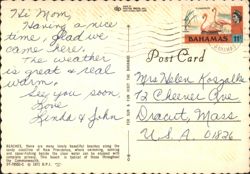 Hi Mom,
Having a nice
time, glad we
came here.
The weather
is great & real
warm.
See you soon,
Love
Linda & John
BEACHES, there are many lovely beautiful beaches along the
sandy coastline of New Providence, where swimming, sunning
and
water can be enjoyed with
complete privacy. This beach is typical of those throughout
the Commonwealth.
BAHAMAS
11
Post Card
Mrs Helen
12 Cheever Ave
Dracut, Mass
U.S.A. 01826